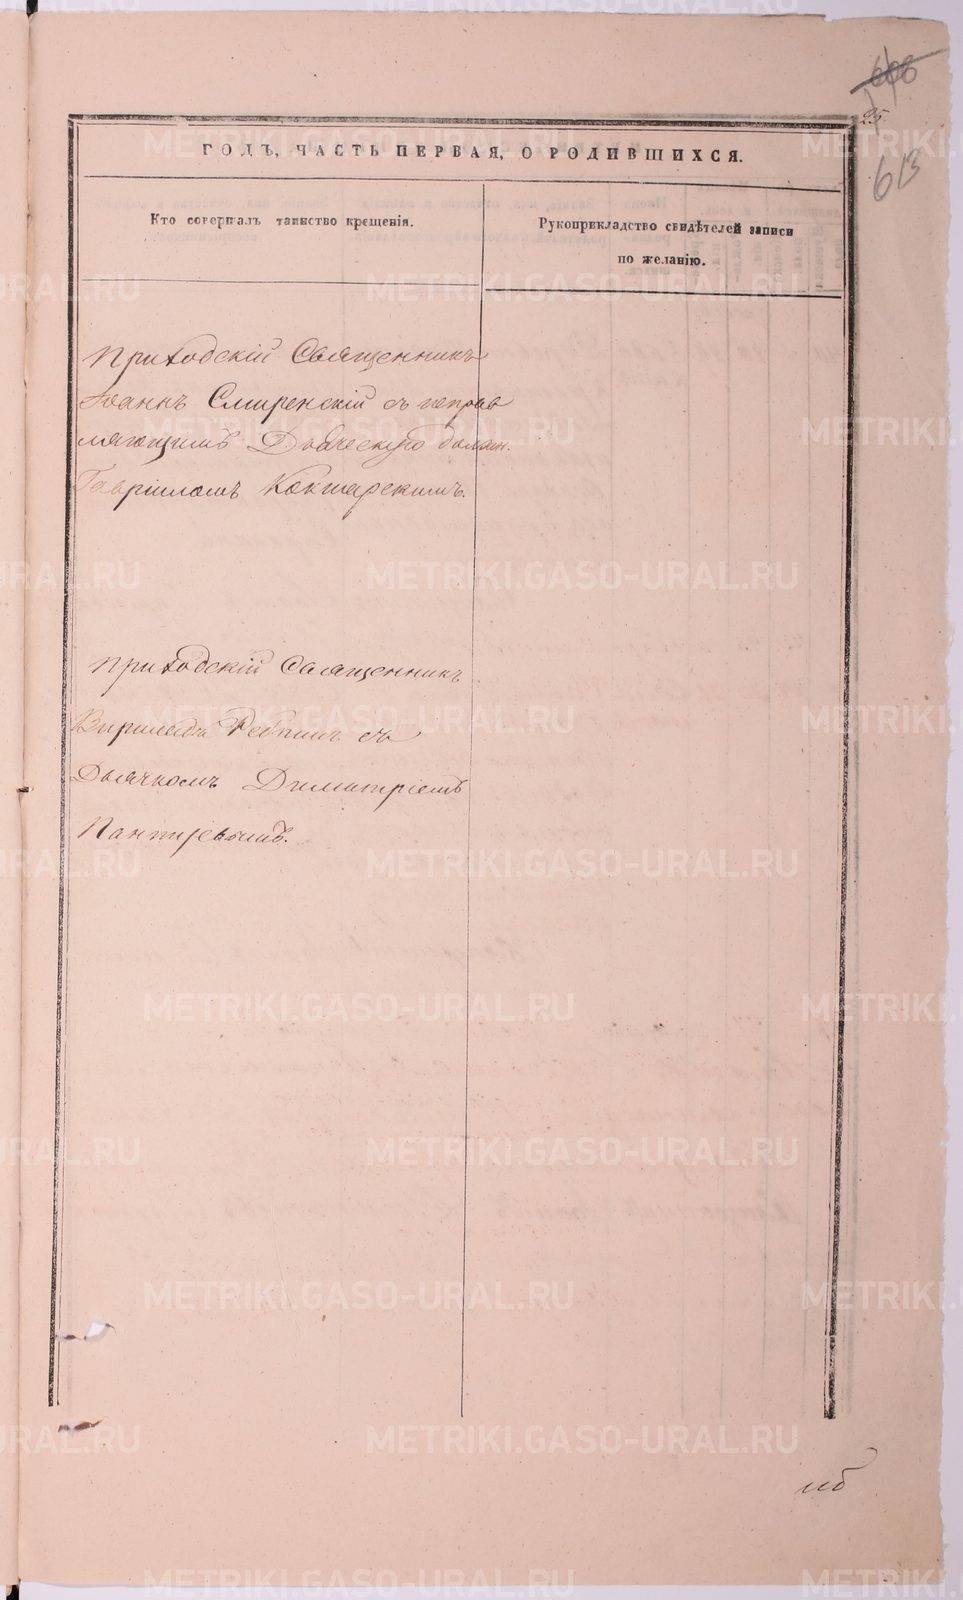 606
95
613
ГОДЪ, ЧАСТЬ ПЕРВАЯ, О РОДИВШИХСЯ.
Кто совершалъ таинство крещенія.
Рукоприкладство свидѣтелей записи
по желанію.
Приходскій Священникъ
Іоаннъ Смиренскій съ исправ
ляющимъ Дьяческую должн.
Гавріиломъ Кокшарскимъ.
Приходскій Священникъ
Кириллъ Рѣпинъ съ
Дьячкомъ Димитріемъ
METRIKI.GASO-URAL.RU